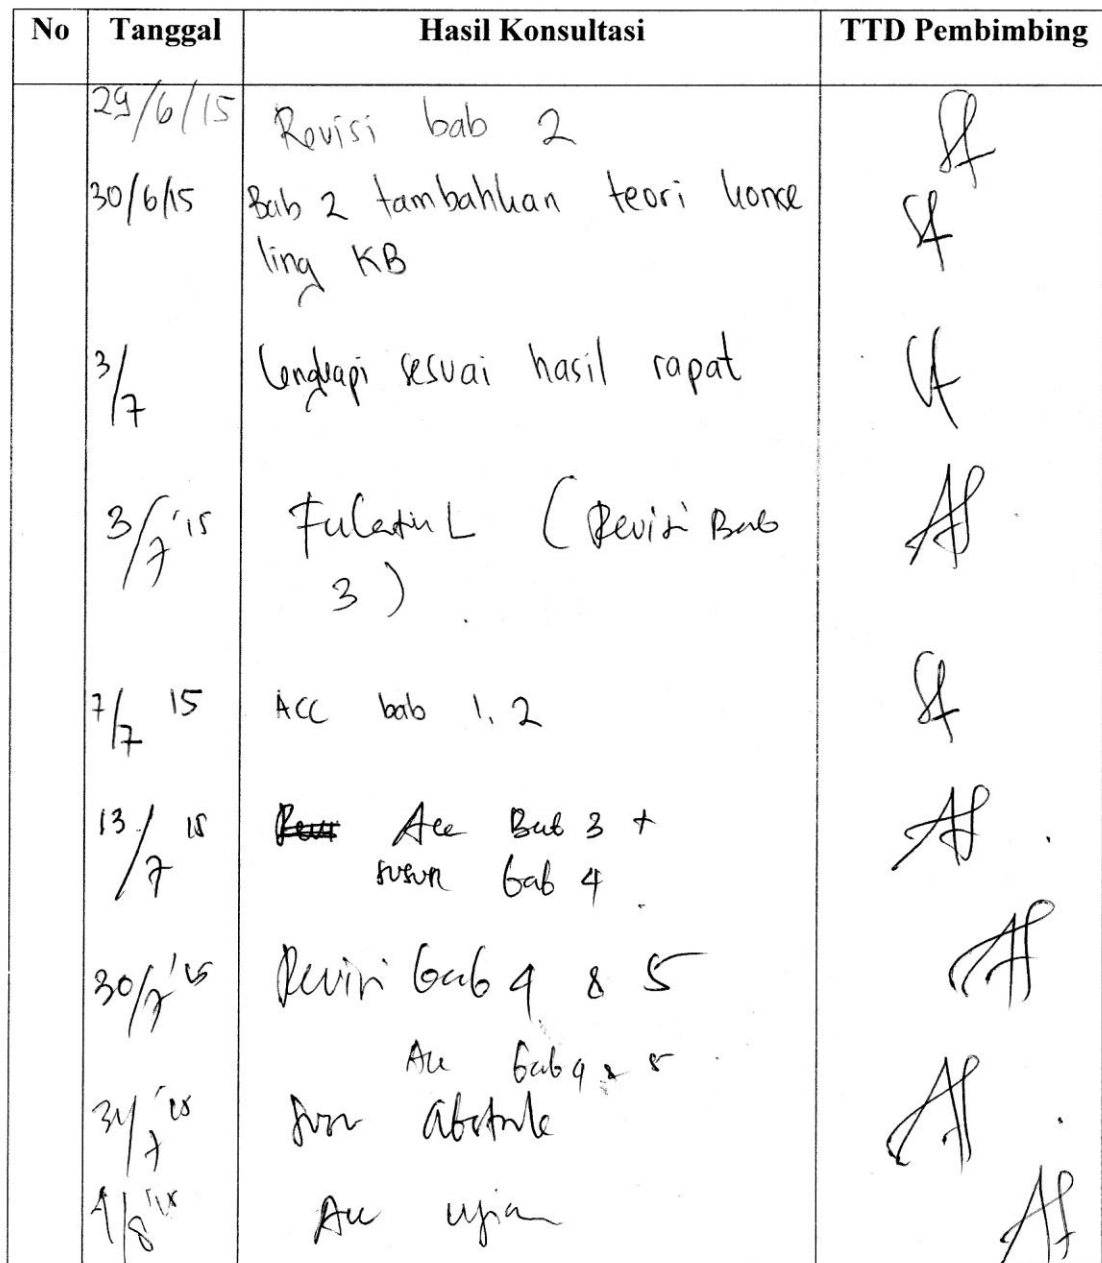 No Tanggal Hasil Konsultasi TTD Pembimbing
29/6/15 Revisi bab 2
30/6/15 Bab 2 tambahkan teori konse
ling KB
3/7 Lengkapi sesuai hasil rapat
3/7 '15 (Revisi Bab
3)
7/7 15 ACC bab 1, 2
13/7 15 Acc Bab 3 +
susun bab 4
30/7 '15 Revisi bab 4 & 5
Acc bab 4 & 5
31/7 '15
4/8 '15 Acc ujian